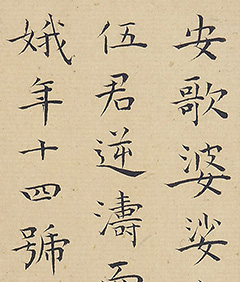 安歌婆娑
伍君逆濤
娥年十四號